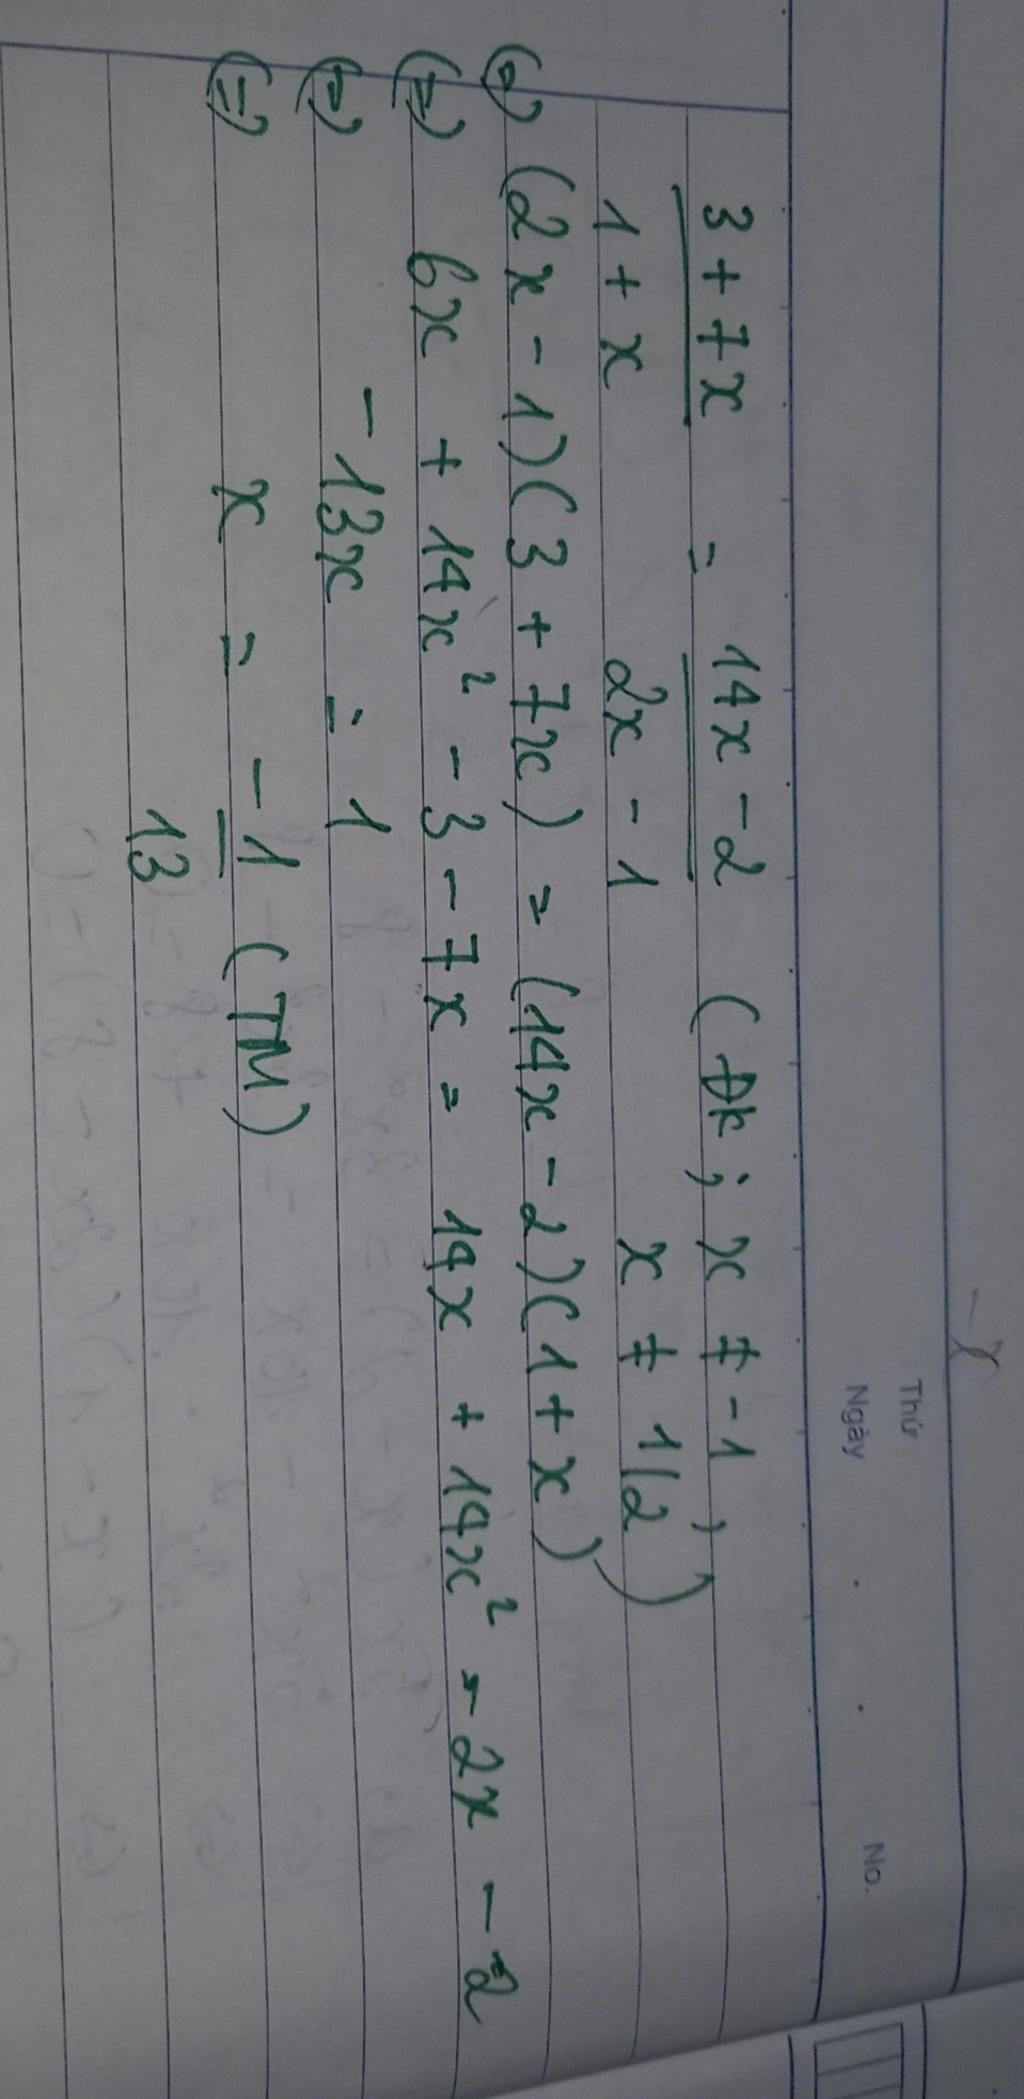 Thứ
Ngày . . No.
3 + 7x = 14x - 2 (Đk ; x ≠ -1 ,
1 + x 2x - 1 x ≠ 1/2 )
(=) (2x - 1)(3 + 7x) = (14x - 2)(1 + x)
(=) 6x + 14x² - 3 - 7x = 14x + 14x² - 2x - 2
(=) - 13x = 1
(=) x = -1 (TM)
13